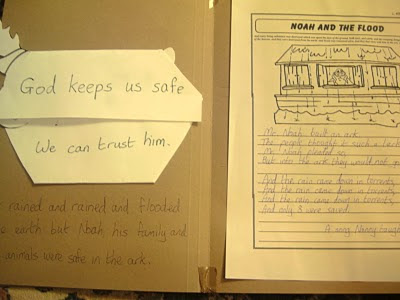 God keeps us safe
We can trust him.
rained and rained and flooded
earth but Noah, his family and
animals were safe in the ark.
NOAH AND THE FLOOD
Mr. Noah built an ark,
The people thought it such a lark.
Mr. Noah pleaded so,
But into the ark they would not go.
And the rain came down in torrents,
And the rain came down in torrents,
And the rain came down in torrents,
And only 8 were saved.
A song Nanny taught